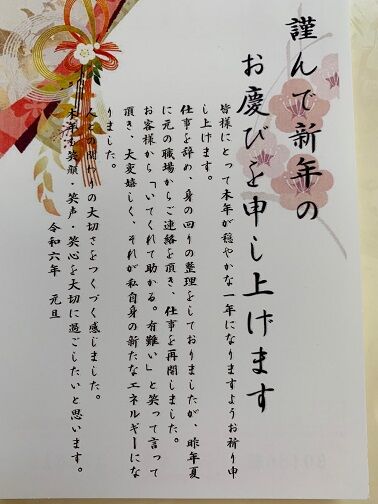 謹んで新年の
お慶びを申し上げます
皆様にとって本年が穏やかな一年になりますようお祈り申
し上げます。
仕事を辞め、身の回りの整理をしておりましたが、昨年夏
に元の職場からご連絡を頂き、仕事を再開しました。
お客様から「いてくれて助かる。有難い」と笑って言って
頂き、大変嬉しく、それが私自身の新たなエネルギーにな
りました。
人との関わりの大切さをつくづく感じました。
本年も笑顔・笑声・笑心を大切に過ごしたいと思います。
令和六年 元旦